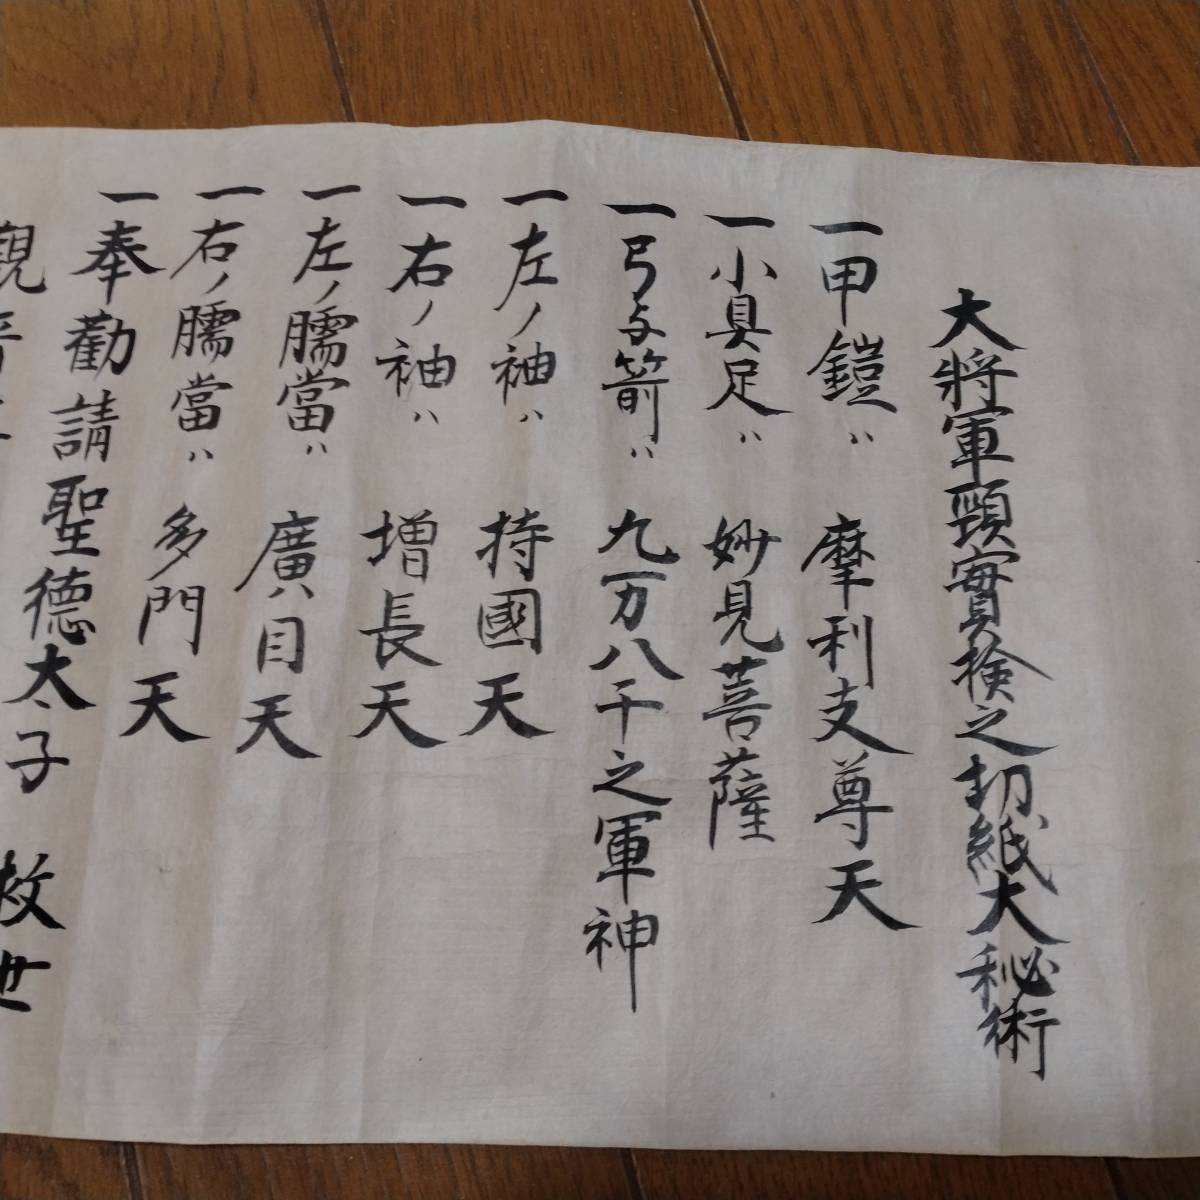 大將軍頸實檢之切紙大秘術
一甲鎧ハ 摩利支尊天
一小具足ハ 妙見菩薩
一弓与箭ハ 九万八千之軍神
一左ノ袖ハ 持國天
一右ノ袖ハ 増長天
一左ノ臑當ハ 廣目天
一右ノ臑當ハ 多門天
一奉勸請聖德太子 救世
觀音